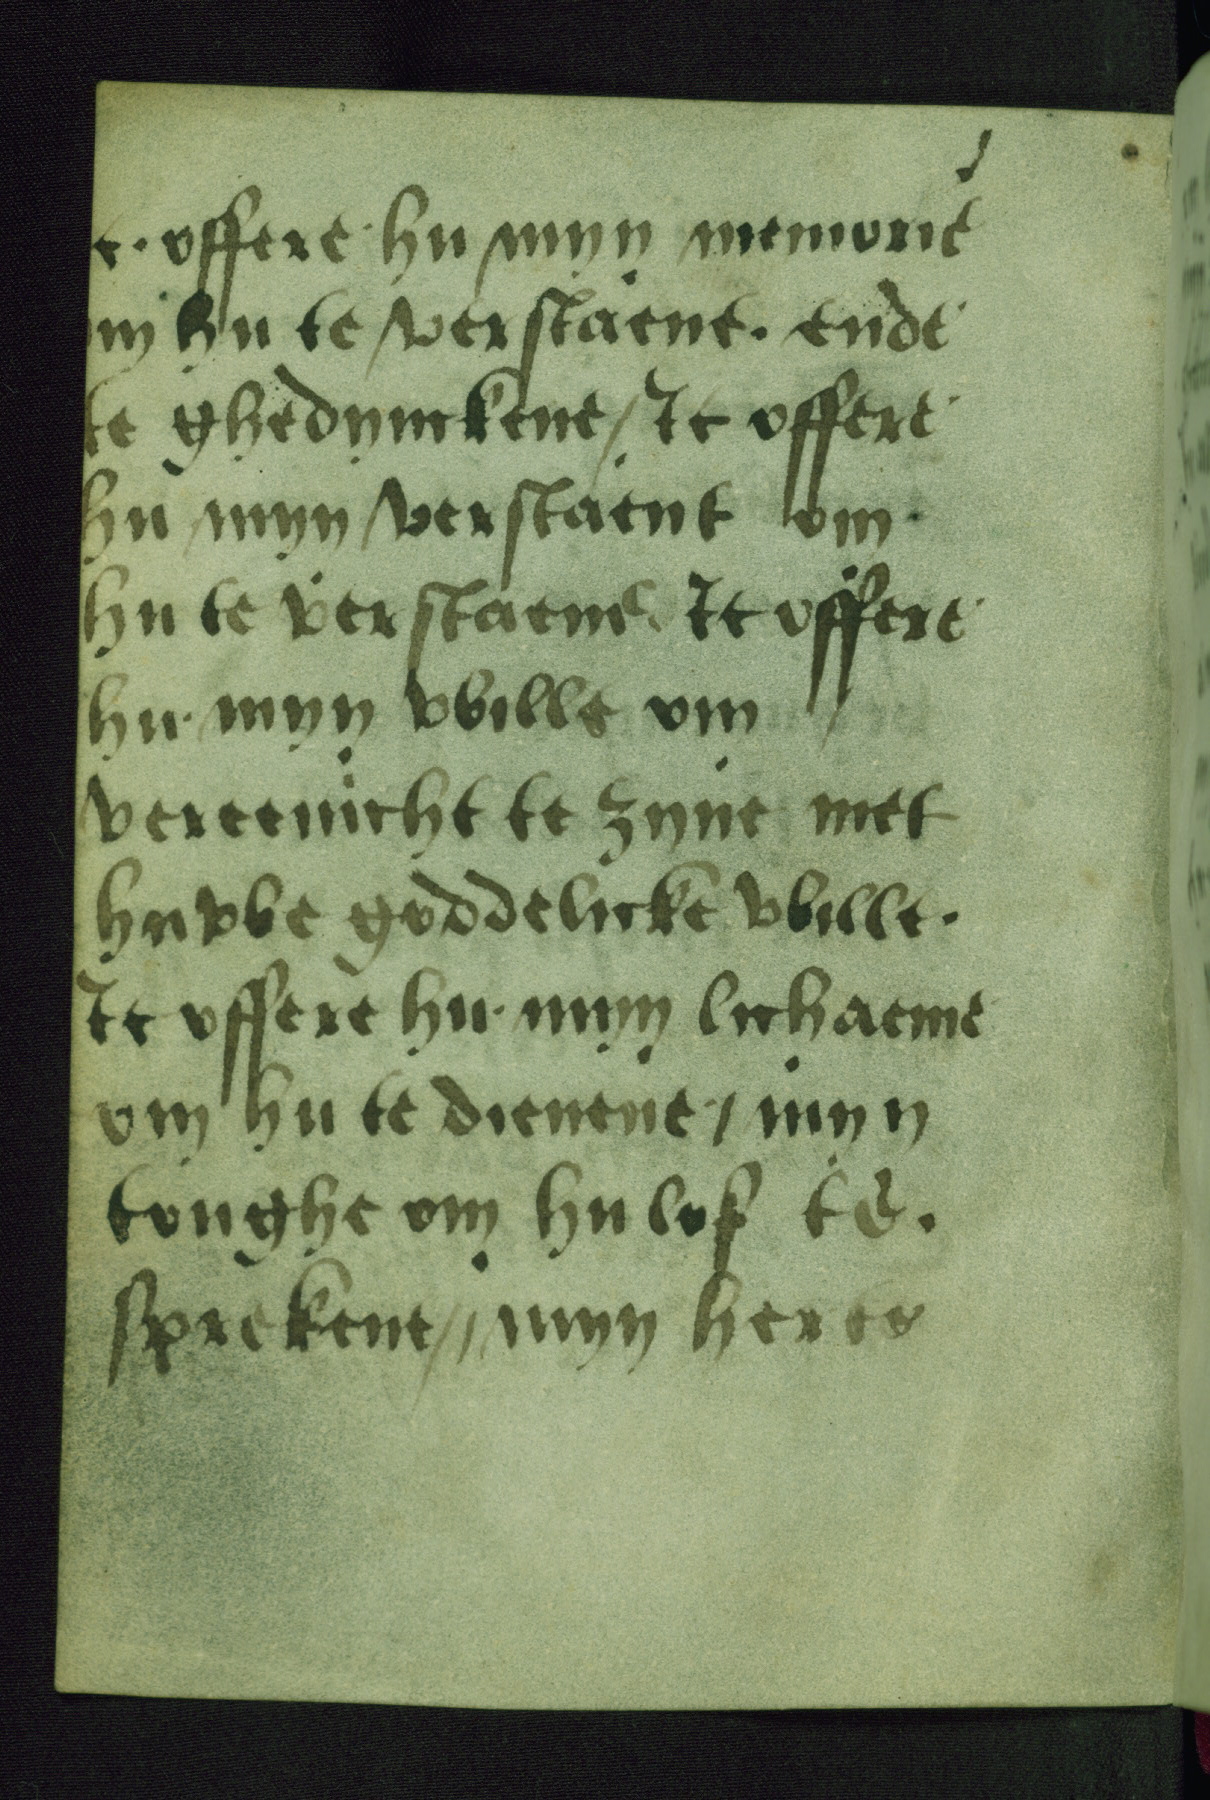 c. offere hu myn memorie
om hu te verstaene. ende
te ghedynckene / Ic offere
hu myn verstaent om
hu te verstaene. Ic offere
hu myn wille om
vereenicht te zyne met
huwe goddelicke wille.
Ic offere hu myn lichaeme
om hu te dienene / myn
tonghe om hu lof te.
sprekene // myn herte